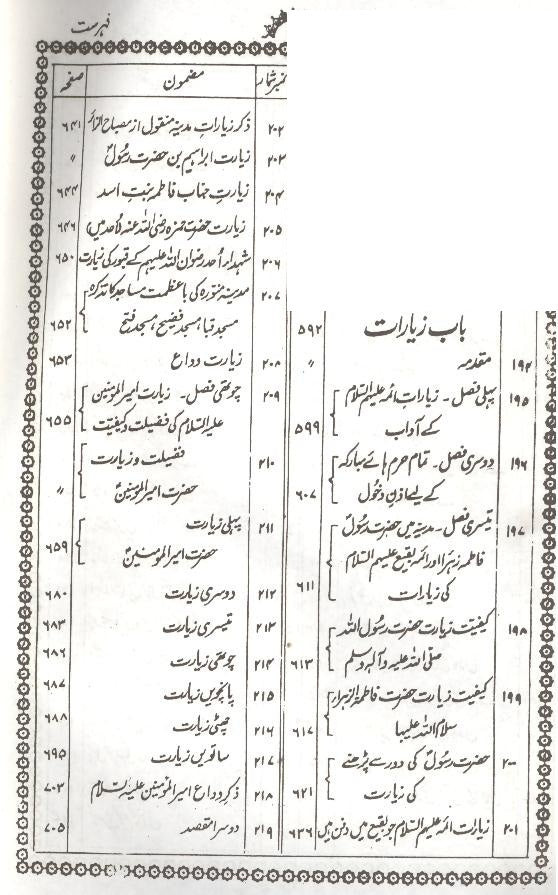 فہرست
باب زیارات ۵۹۲
۱۹۴ مقدمہ 〃
۱۹۵ پہلی فصل۔ زیارات ائمہ علیہم السلام
کے آداب ۵۹۹
۱۹۶ دوسری فصل۔ تمام حرم ہائے مبارکہ
کے لیے اذنِ دخول ۶۰۷
۱۹۷ تیسری فصل۔ مدینہ میں حضرت رسولؐ
فاطمہ زہرا اور ائمہ بقیع علیہم السلام
کی زیارات ۶۱۱
۱۹۸ کیفیت زیارت حضرت رسول اللہ
صلی اللہ علیہ وآلہ وسلم ۶۱۳
۱۹۹ کیفیت زیارت حضرت فاطمۃ الزہراء
سلام اللہ علیہا ۶۱۷
۲۰۰ حضرت رسولؐ کی دور سے پڑھنے
کی زیارت ۶۲۱
۲۰۱ زیارت ائمہ علیہم السلام جو بقیع میں دفن ہیں ۶۳۶
نمبر شمار مضمون صفحہ
۲۰۲ ذکر زیارات مدینہ منقول از مصباح الزائر ۶۴۱
۲۰۳ زیارت ابراہیم بن حضرت رسولؐ 〃
۲۰۴ زیارت جناب فاطمہ بنت اسد ۶۴۴
۲۰۵ زیارت حضرت حمزہ رضی اللہ عنہ (احد میں) ۶۴۶
۲۰۶ شہداء اُحد رضوان اللہ علیہم کے قبور کی زیارت ۶۵۰
۲۰۷ مدینہ منورہ کی باعظمت مساجد کا تذکرہ
مسجد قبا، مسجد فضیح، مسجد فتح ۶۵۲
۲۰۸ زیارت وداع ۶۵۳
۲۰۹ چوتھی فصل۔ زیارت امیرالمومنین
علیہ السلام کی فضیلت و کیفیت ۶۵۵
۲۱۰ فضیلت و زیارت
حضرت امیرالمومنینؑ 〃
۲۱۱ پہلی زیارت
حضرت امیرالمومنینؑ ۶۵۹
۲۱۲ دوسری زیارت ۶۸۰
۲۱۳ تیسری زیارت ۶۸۳
۲۱۴ چوتھی زیارت ۶۸۶
۲۱۵ پانچویں زیارت ۶۸۷
۲۱۶ چھٹی زیارت ۶۸۸
۲۱۷ ساتویں زیارت ۶۹۵
۲۱۸ ذکر وداع امیرالمومنین علیہ السلام ۷۰۳
۲۱۹ دوسرا مقصد ۷۰۵